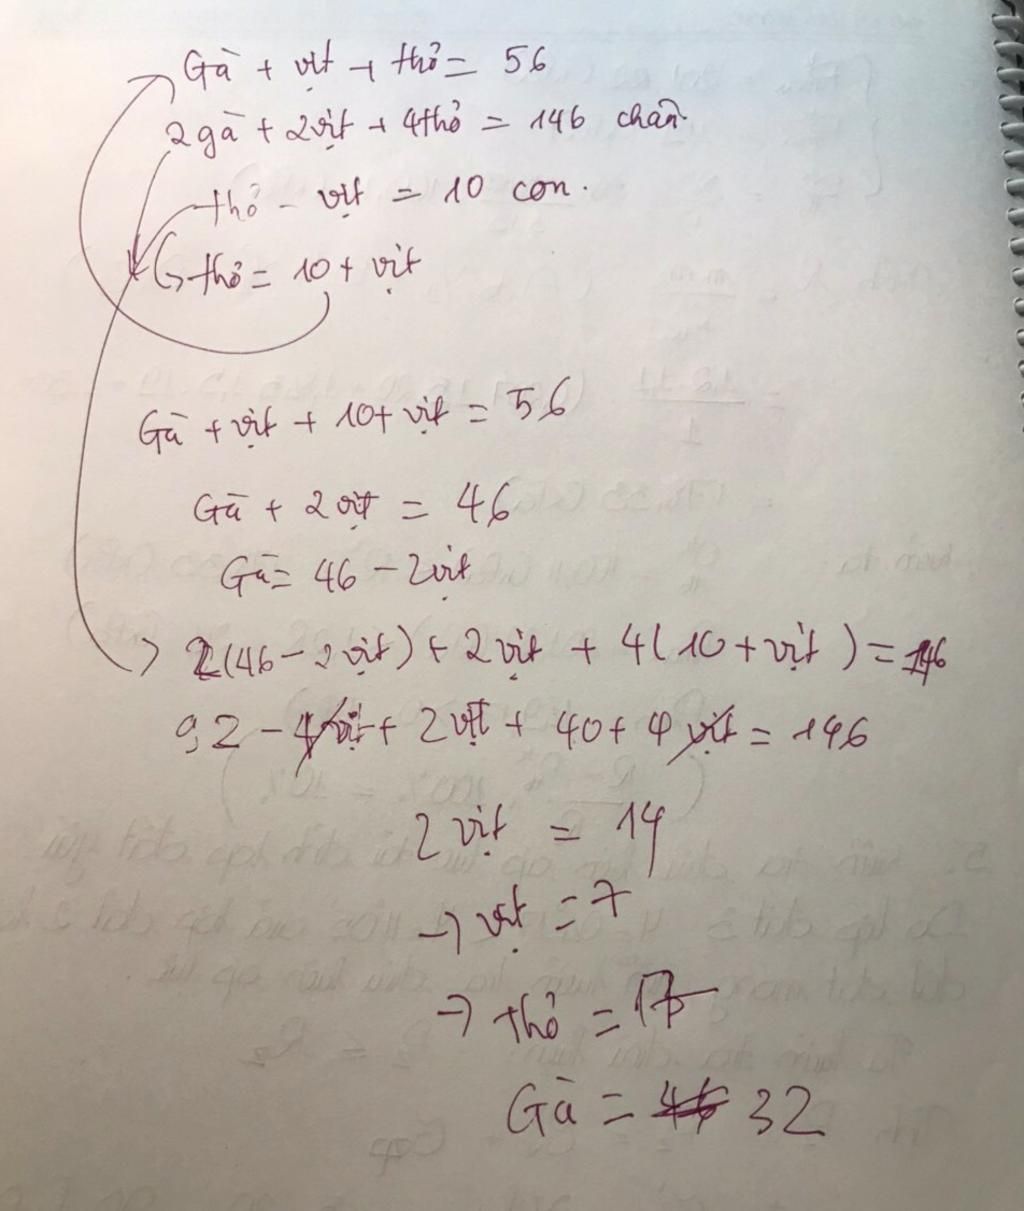 Gà + vịt + thỏ = 56
2gà + 2vịt + 4thỏ = 146 chân.
thỏ - vịt = 10 con.
thỏ = 10 + vịt
Gà + vịt + 10 + vịt = 56
Gà + 2 vịt = 46
Gà = 46 - 2vịt
2(46 - 2 vịt) + 2 vịt + 4(10 + vịt) = 146
92 - 4vịt + 2 vịt + 40 + 4 vịt = 146
2 vịt = 14
→ vịt = 7
→ thỏ = 17
Gà = 46 32